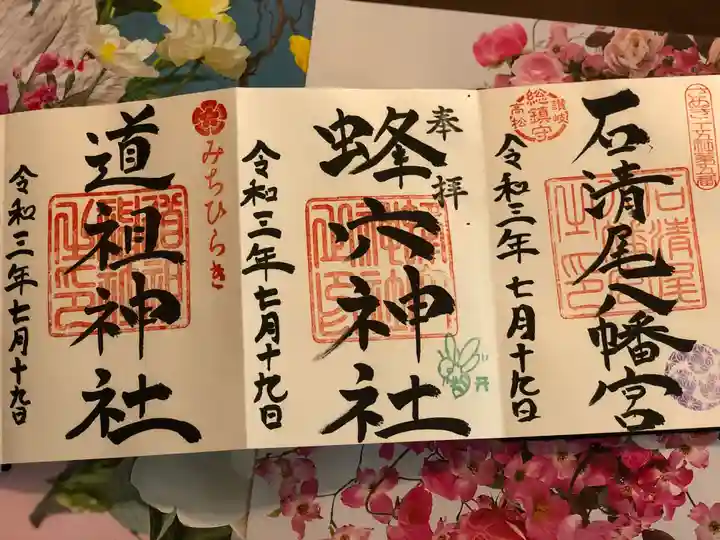 讃岐
総鎮守
高松
石清尾八幡宮
令和三年七月十九日
奉拝
蜂穴神社
令和三年七月十九日
みちひらき
道祖神社
令和三年七月十九日